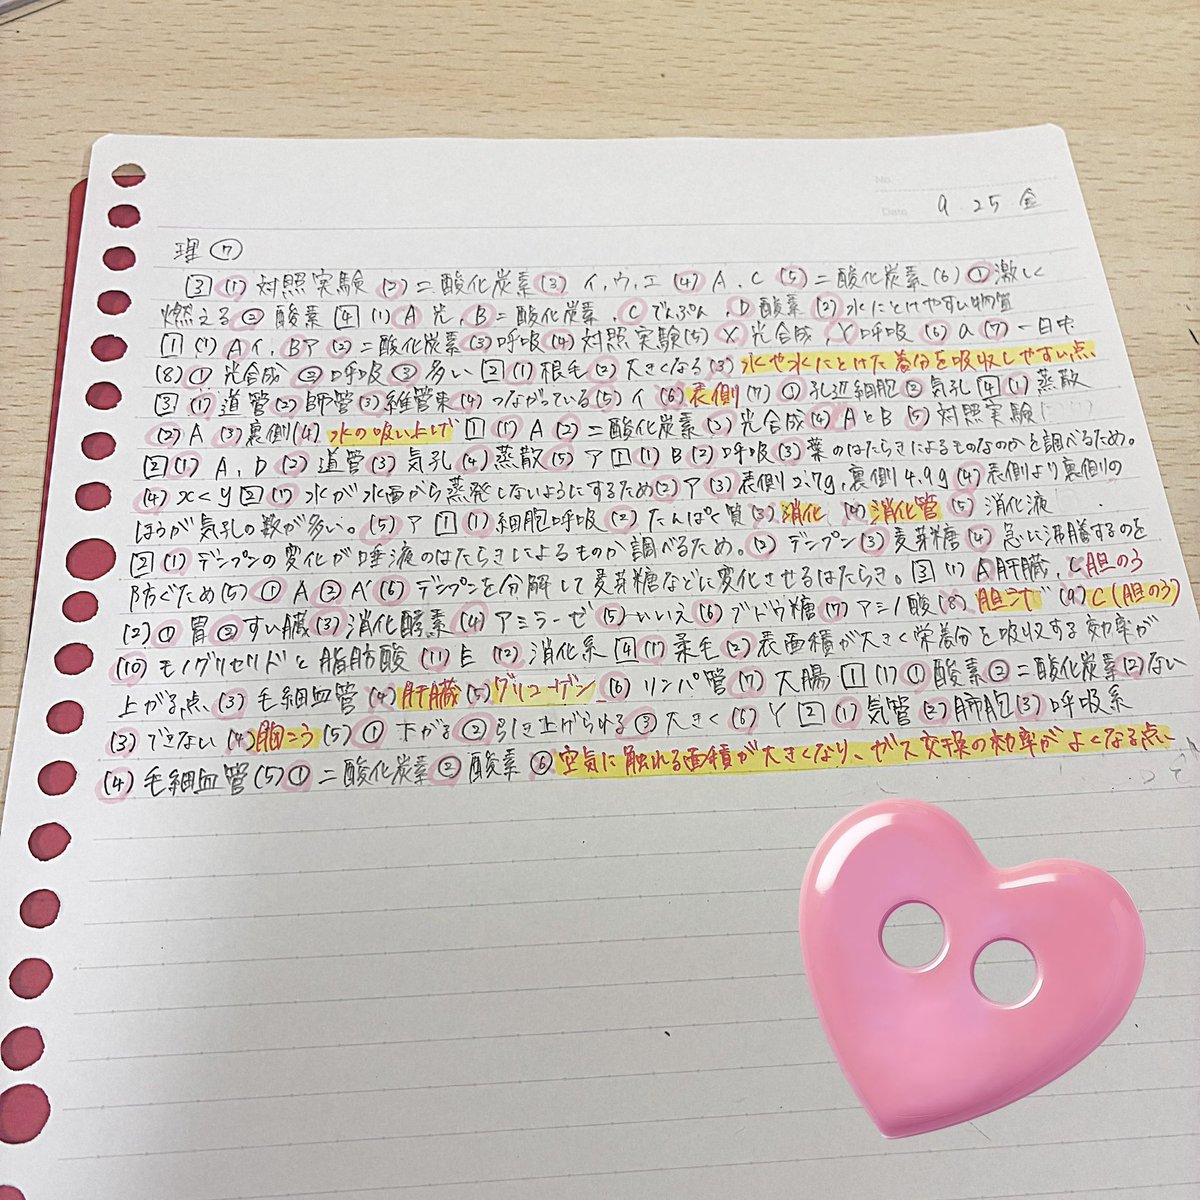 No.
Date 9 25 金
理⑦
[3] (1) 対照実験 (2) 二酸化炭素 (3) イ, ウ, エ (4) A, C (5) 二酸化炭素 (6) ① 激しく
燃える ② 酸素 [4] (1) A 光, B 二酸化炭素, C でんぷん, D 酸素 (2) 水にとけやすい物質
[1] (1) A イ, B ア (2) 二酸化炭素 (3) 呼吸 (4) 対照実験 (5) X 光合成, Y 呼吸 (6) a (7) 一日中
(8) ① 光合成 ② 呼吸 ③ 多い [2] (1) 根毛 (2) 大きくなる (3) 水や水にとけた養分を吸収しやすい点、
[3] (1) 道管 (2) 師管 (3) 維管束 (4) つながっている (5) イ (6) 表側 (7) ① 孔辺細胞 ② 気孔 [4] (1) 蒸散
(2) A (3) 裏側 (4) 水の吸い上げ [1] (1) A (2) 二酸化炭素 (3) 光合成 (4) AとB (5) 対照実験
[2] (1) A, D (2) 道管 (3) 気孔 (4) 蒸散 (5) ア [1] (1) B (2) 呼吸 (3) 葉のはたらきによるものなのかを調べるため。
(4) x<y [2] (1) 水が水面から蒸発しないようにするため (2) ア (3) 表側 2.7g, 裏側 4.9g (4) 表側より裏側の
ほうが気孔の数が多い。 (5) ア [1] (1) 細胞呼吸 (2) たんぱく質 (3) 消化 (4) 消化管 (5) 消化液
[2] (1) デンプンの変化が唾液のはたらきによるものか調べるため。 (2) デンプン (3) 麦芽糖 (4) 急に沸騰するのを
防ぐため (5) ① A ② A' (6) デンプンを分解して麦芽糖などに変化させるはたらき。 [3] (1) A 肝臓, C 胆のう
(2) ① 胃 ② すい臓 (3) 消化酵素 (4) アミラーゼ (5) いいえ (6) ブドウ糖 (7) アミノ酸 (8) 胆汁 (9) C (胆のう)
(10) モノグリセリドと脂肪酸 (11) E (12) 消化系 [4] (1) 柔毛 (2) 表面積が大きく栄養分を吸収する効率が
上がる点、 (3) 毛細血管 (4) 肝臓 (5) グリコーゲン (6) リンパ管 (7) 大腸 [1] (1) ① 酸素 ② 二酸化炭素 (2) ない
(3) できない (4) 胸こう (5) ① 下がる ② 引き上げられる ③ 大きく (6) Y [2] (1) 気管 (2) 肺胞 (3) 呼吸系
(4) 毛細血管 (5) ① 二酸化炭素 ② 酸素 ⑥ 空気に触れる面積が大きくなり、ガス交換の効率がよくなる点、